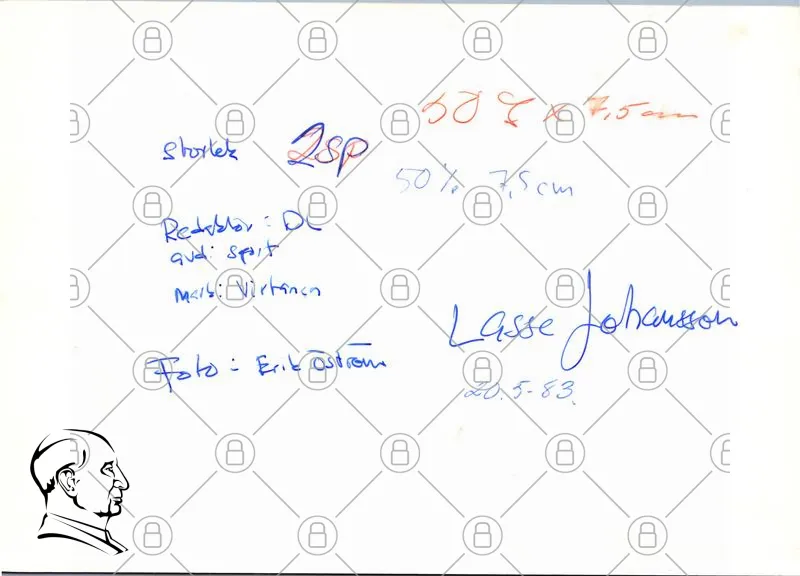 storlek 2sp
50 % x 7,5 cm
50% 7,5 cm
Redaktör: DL
avd: sport
märk: Virtanen
Lasse Johansson
Foto: Erik Öström
20.5-83.